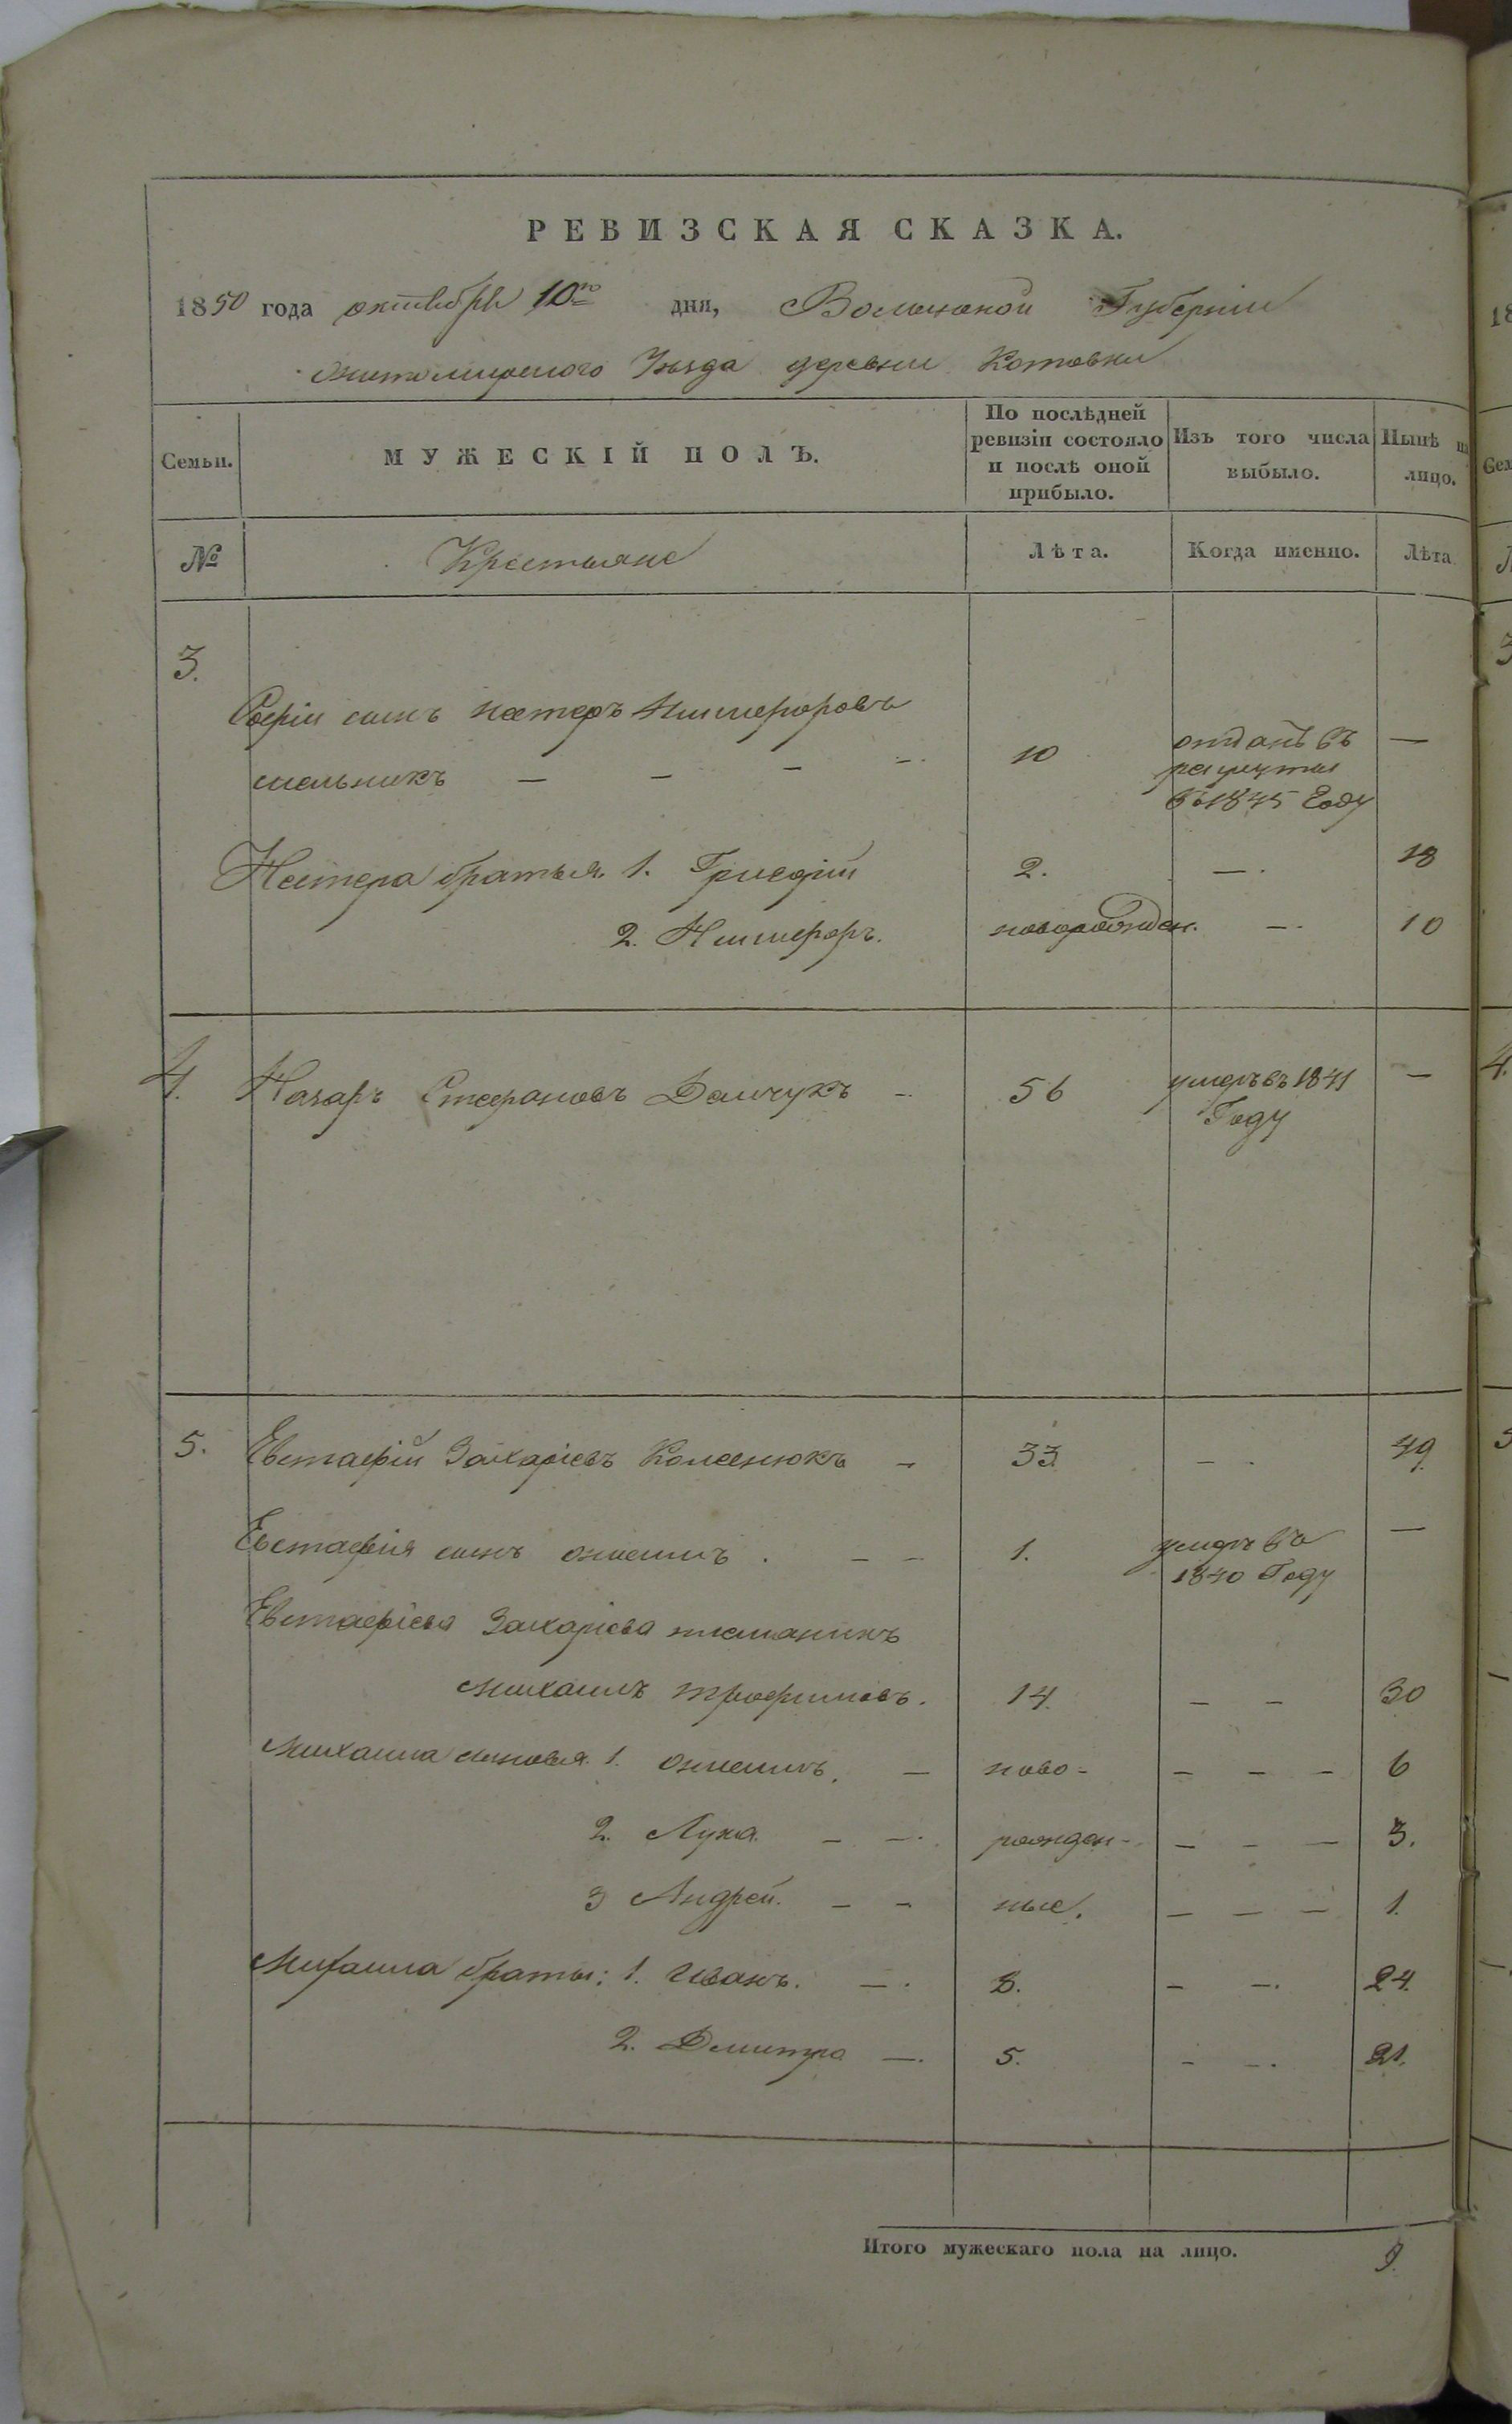 РЕВИЗСКАЯ СКАЗКА.
1850 года октября 10го дня, Волынской Губернии
житомирского Уъзда деревни Котовки
Семьи. МУЖЕСКІЙ ПОЛЪ. По послѣдней ревизіи состояло и послѣ оной прибыло. Изъ того числа выбыло. Нынѣ на лицо.
№ Крестьяне Лѣта. Когда именно. Лѣта
3.
Софіи сынъ нестеръ Никифоровъ
мельникъ — — — — 10 отданъ въ рекруты въ 1845 Году —
Нестера братья 1. Григорій 2. —. 18
2. Никифоръ. новорожден. —. 10
4. Назаръ Стефановъ Демчукъ — 56 умеръ въ 1841 Году —
5. Евстафій Захаріевъ — 33 — — 49
Евстафія сынъ . — — 1. умеръ въ 1840 Году —
Евстафіева Захаріева племяникъ
михаилъ трофимовъ. 14. — — 30
михаила сыновья 1. — ново- — — — 6
2. Лука. — —. рожден- — — — 3.
3 Андрей. — — ные. — — — 1.
Михаила братья: 1. Иванъ. —. 8. — —. 24.
2. Дмитро —. 5. — —. 21.
Итого мужескаго пола на лицо. 9.